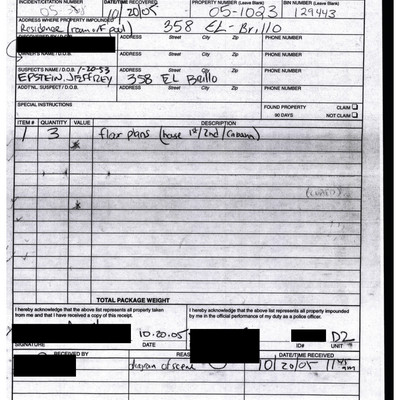 INCIDENT/CITATION NUMBER DATE/TIME RECOVERED PROPERTY NUMBER (Leave Blank) BIN NUMBER (Leave Blank)
10/20/05 05-1023 129443
ADDRESS WHERE PROPERTY IMPOUNDED ADDRESS Street City Zip PHONE NUMBER
Residence 358 EL-Brillo
ADDRESS Street City Zip PHONE NUMBER
OWNER'S NAME / D.O.B. ADDRESS Street City Zip PHONE NUMBER
SUSPECT'S NAME / D.O.B. 1-20-53 ADDRESS Street City Zip PHONE NUMBER
EPSTEIN, JEFFREY 358 EL Brillo
ADDT'NL. SUSPECT / D.O.B. ADDRESS Street City Zip PHONE NUMBER
SPECIAL INSTRUCTIONS FOUND PROPERTY CLAIM
90 DAYS NOT CLAIM
ITEM # QUANTITY VALUE DESCRIPTION
1 3 floor plans (house 1st/2nd/Cabana)
TOTAL PACKAGE WEIGHT
I hereby acknowledge that the above list represents all property taken from me and that I have received a copy of this receipt.
I hereby acknowledge that the above list represents all property impounded by me in the official performance of my duty as a police officer.
10.20.05 D2
SIGNATURE DATE ID# UNIT
RECEIVED BY REAS DATE/TIME RECEIVED
diagram of scene 10/20/05 11